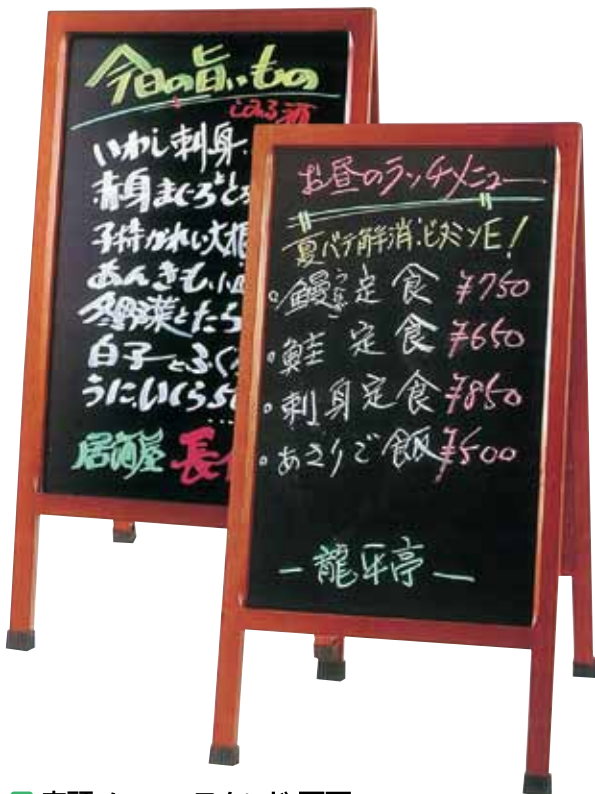 今日の旨いもの
いわし刺身
青身まぐろとろ
子持がれい大根
あんきも、小
冬野菜とたら
白子とふぐ
うに、いくら
居酒屋 長
お昼のランチメニュー
夏バテ解消・ビタミンE!
鰻(うなぎ)定食 ¥750
鮭定食 ¥650
刺身定食 ¥850
あさりご飯 ¥500
ー龍平亭ー